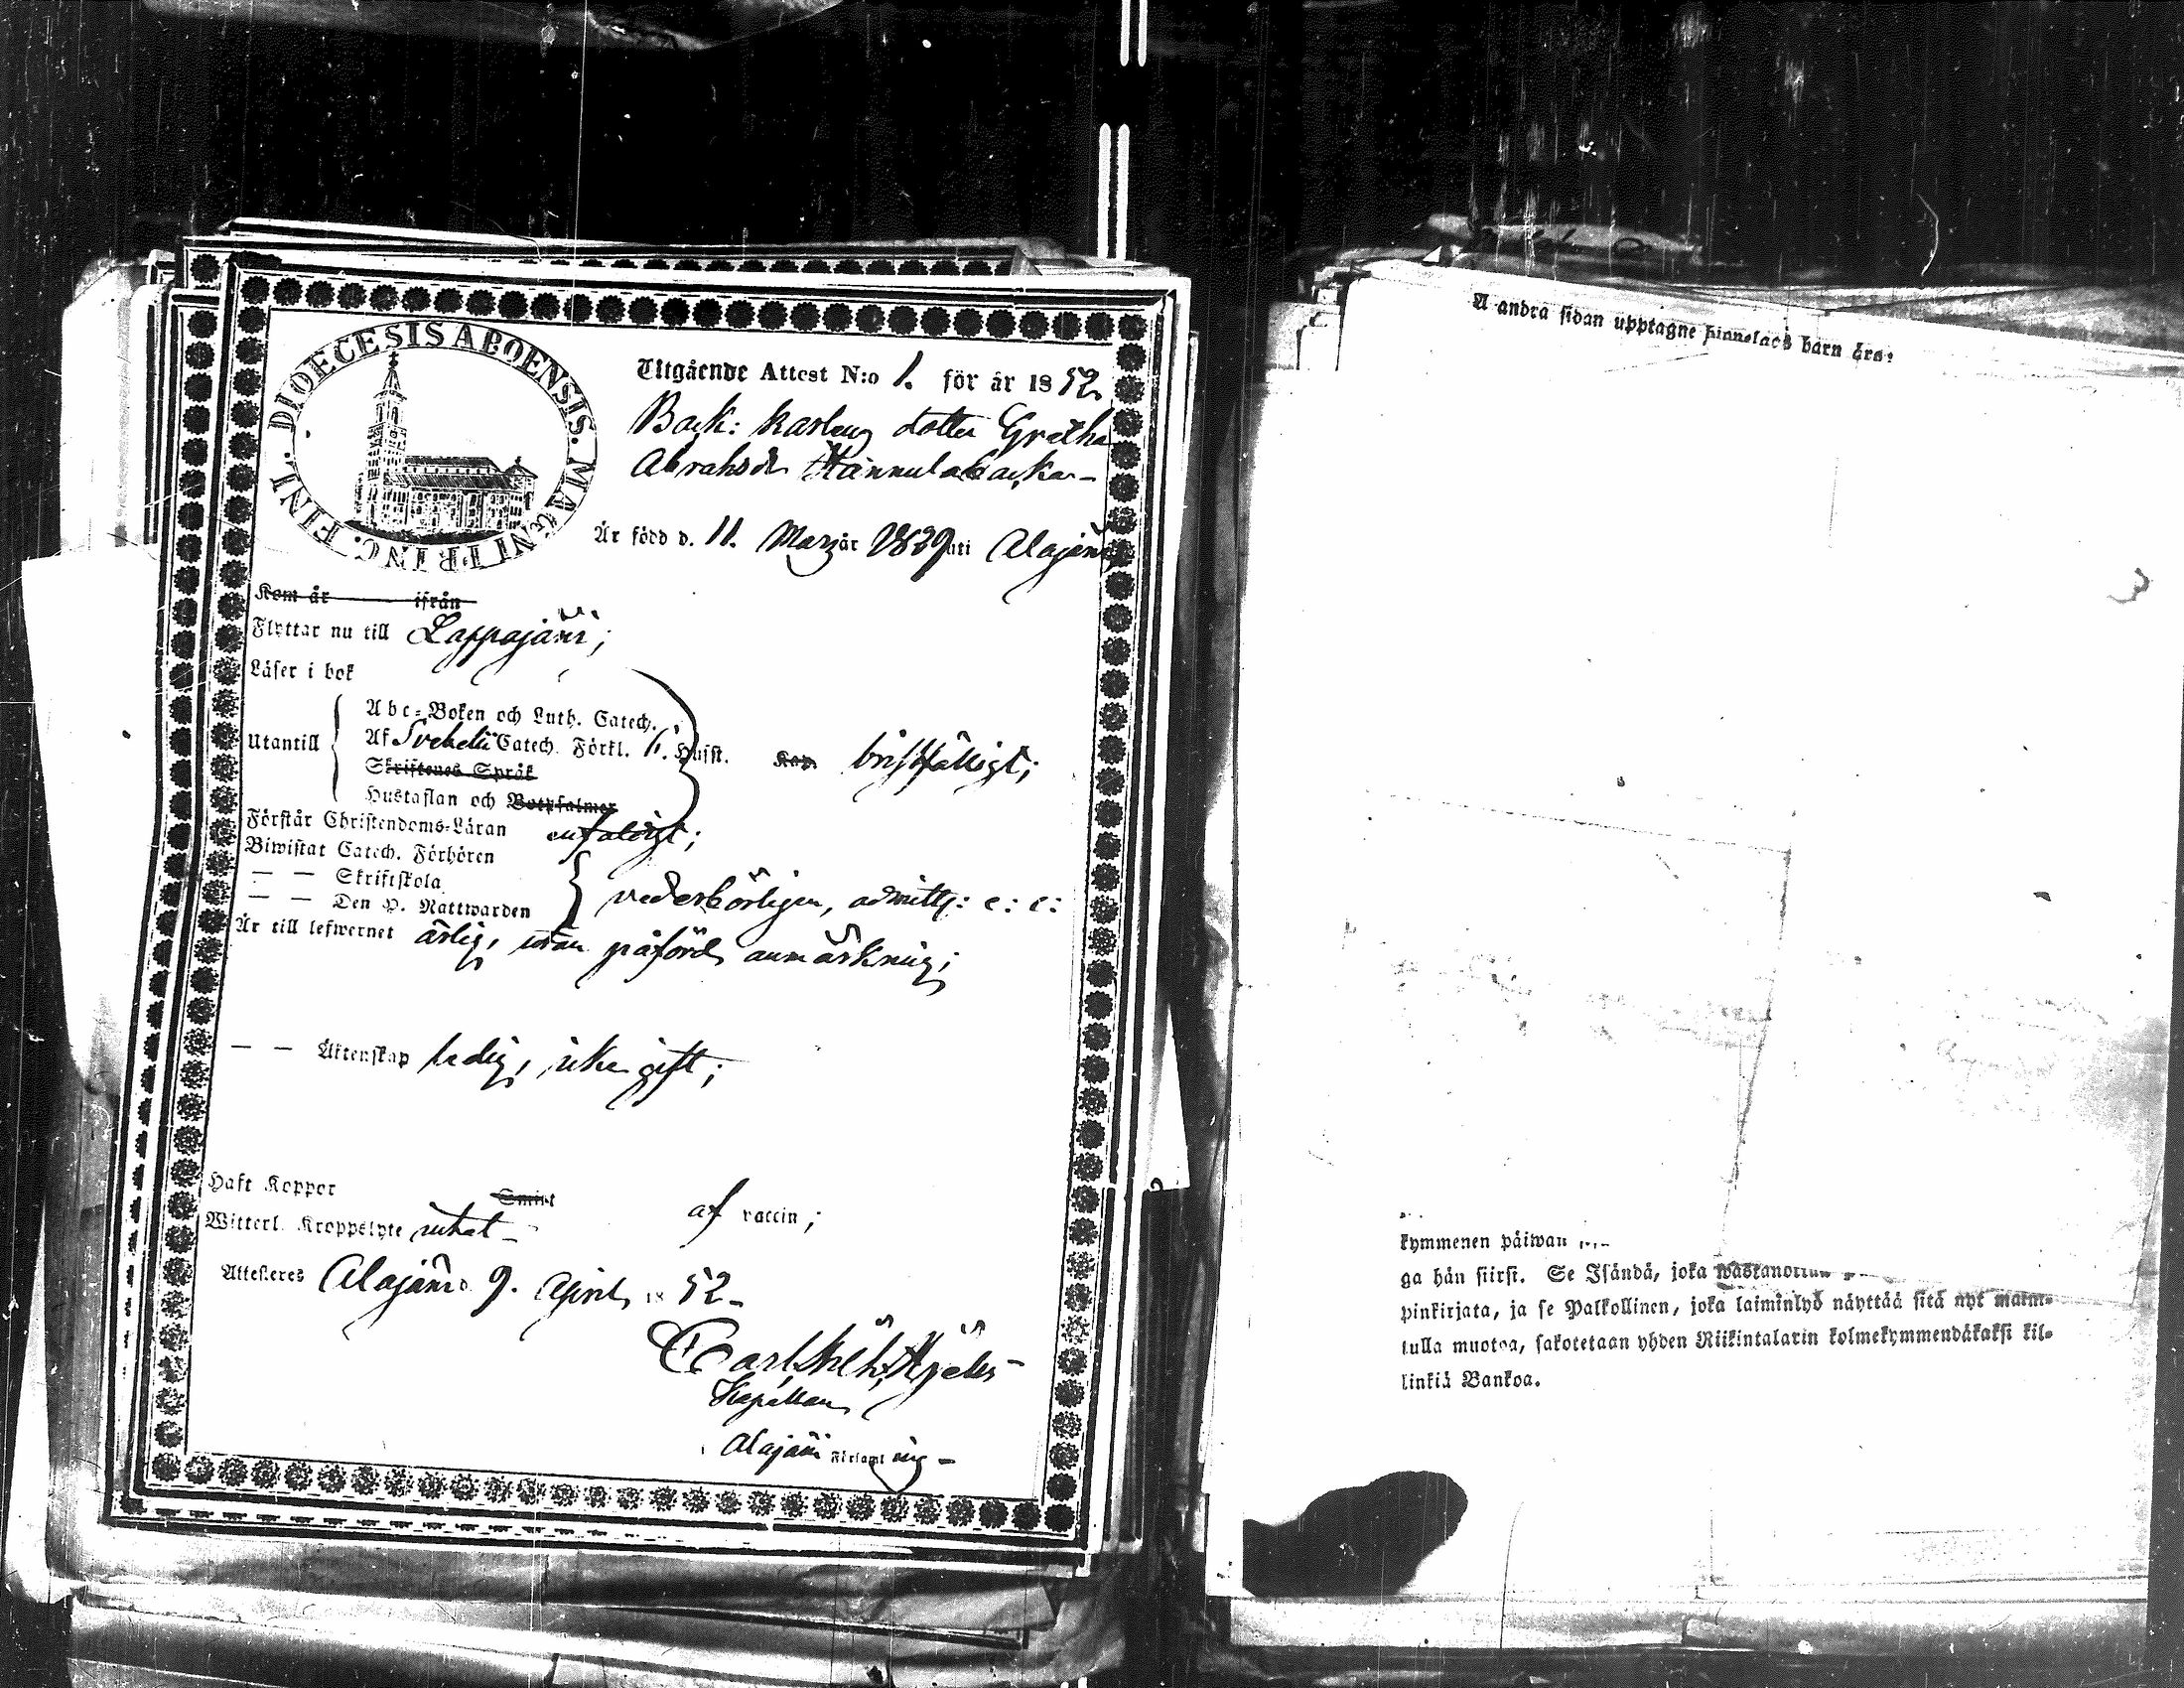 DIOECESIS ABOENSIS. MAGNI PRINC. FINL.
Utgående Attest N:o 1. för år 1852
Back: karlens dotter Gretha
Abrahsdr Hannulabacka-
Är född d. 11. Mars år 1829 uti Alajärvi
Kom år ifrån
Flyttar nu till Lappajärvi;
Läser i bok
Utantill
Abc-Boken och Luth. Catech.
Af Svebelii Catech. Förkl. Hufst. Kap. bristfälligt;
Skriftenes Språk
Hustaflan och Botpsalmer
Förstår Christendoms-Läran enfaldigt;
Biwistat Catech. Förhören
— — Skriftskola
— — Den H. Nattwarden
vederbörligen, admitt: e: c:
Är till lefwernet ärlig, utan påförd anmärkning;
— — Äktenskap ledig, icke gift;
Haft Koppor Smitt af vaccin;
Witterl. Kroppslyte intet-
Attesteres Alajärvi d. 9. April 1852-
Carl
Kapellan
Alajärvi Församl ing-
Å andra sidan upptagne hinnelags barn äro:
kymmenen päiwän
ga hän siirst. Se Isändä, joka
pinkirjata, ja se Palkollinen, joka laiminlyö näyttää sitä nyt maini-
tulla muotoa, sakotetaan yhden Riikintalarin kolmekymmendäkaksi kil-
linkiä Bankoa.